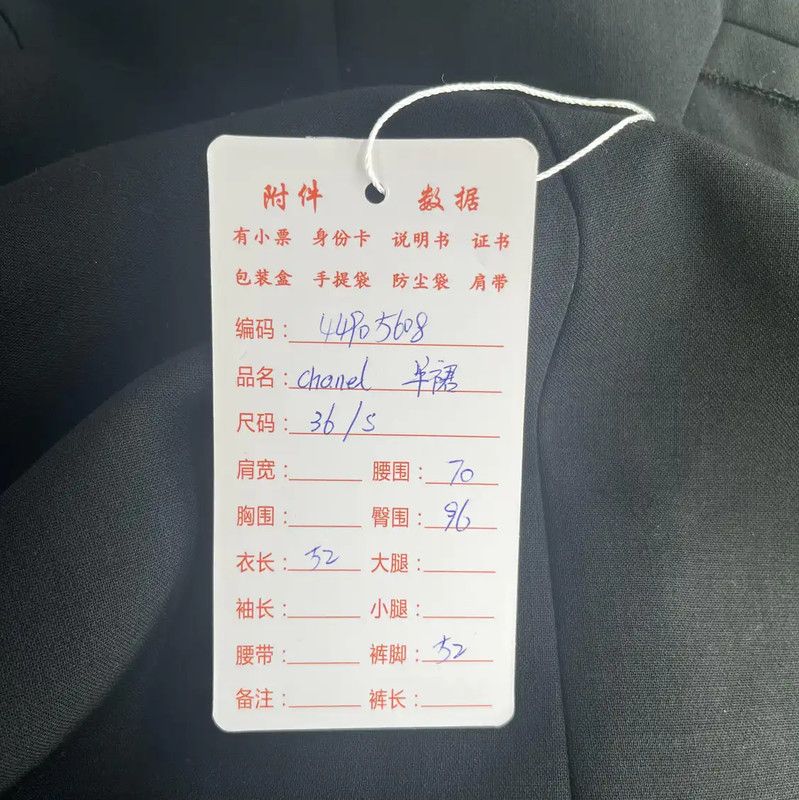 附件 数据
有小票 身份卡 说明书 证书
包装盒 手提袋 防尘袋 肩带
编码: 44905608
品名: Chanel 半裙
尺码: 36/S
肩宽: 腰围: 70
胸围: 臀围: 96
衣长: 52 大腿:
袖长: 小腿:
腰带: 裤脚: 52
备注: 裤长: